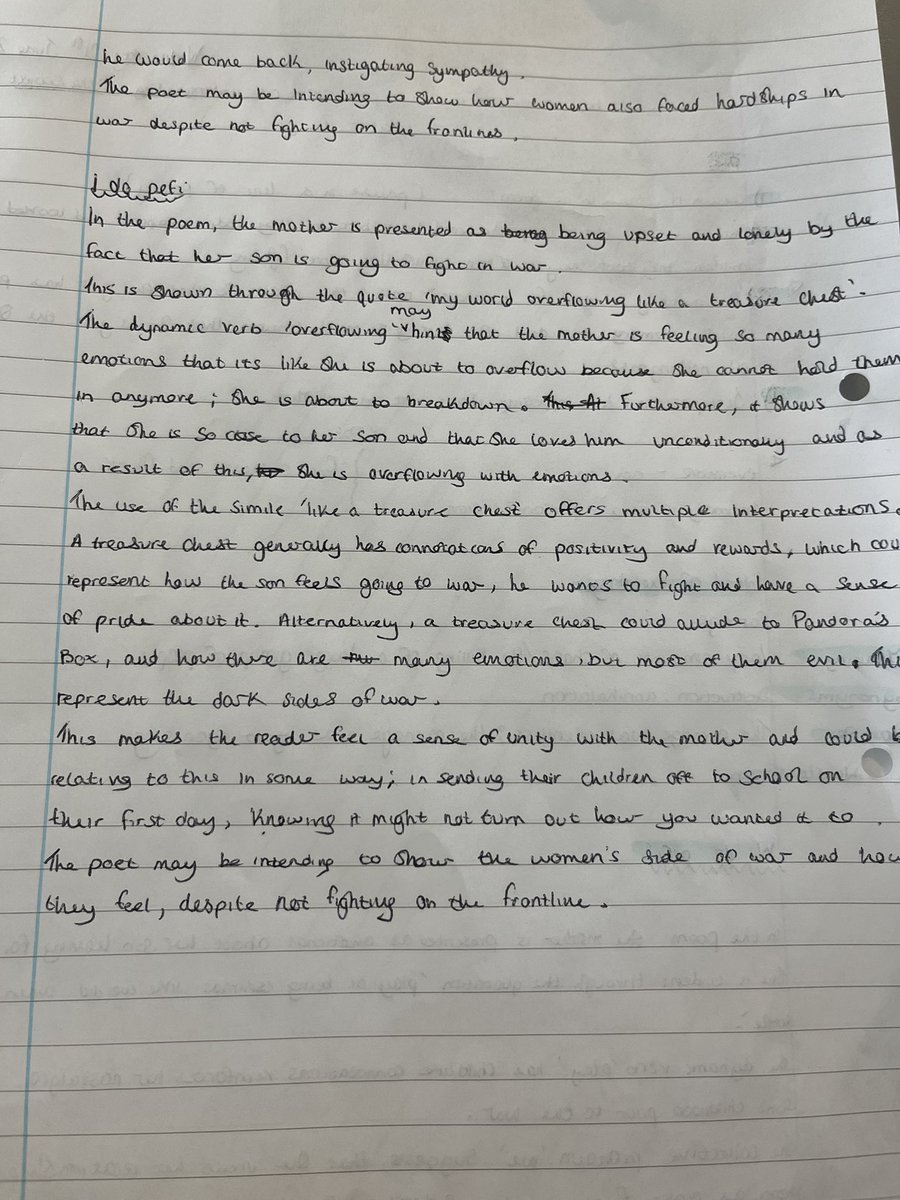 he would come back, instigating sympathy.
The poet may be intending to show how women also faced hardships in
war despite not fighting on the frontlines.
I do peti
In the poem, the mother is presented as being being upset and lonely by the
fact that her son is going to fight in war.
This is shown through the quote 'my world overflowing like a treasure chest'.
The dynamic verb 'overflowing' may hints that the mother is feeling so many
emotions that its like she is about to overflow because she cannot hold them
in anymore; she is about to breakdown. This At Furthermore, it shows
that she is so close to her son and that she loves him unconditionally and as
a result of this, she is overflowing with emotions.
The use of the simile 'like a treasure chest' offers multiple interpretations.
A treasure chest generally has connotations of positivity and rewards, which cou
represent how the son feels going to war, he wants to fight and have a sense
of pride about it. Alternatively, a treasure chest could allude to Pandora's
Box, and how there are many emotions, but most of them evil. Thi
represent the dark sides of war.
This makes the reader feel a sense of unity with the mother and could b
relating to this in some way; in sending their children off to school on
their first day, knowing it might not turn out how you wanted it to.
The poet may be intending to show the women's side of war and how
they feel, despite not fighting on the frontline.